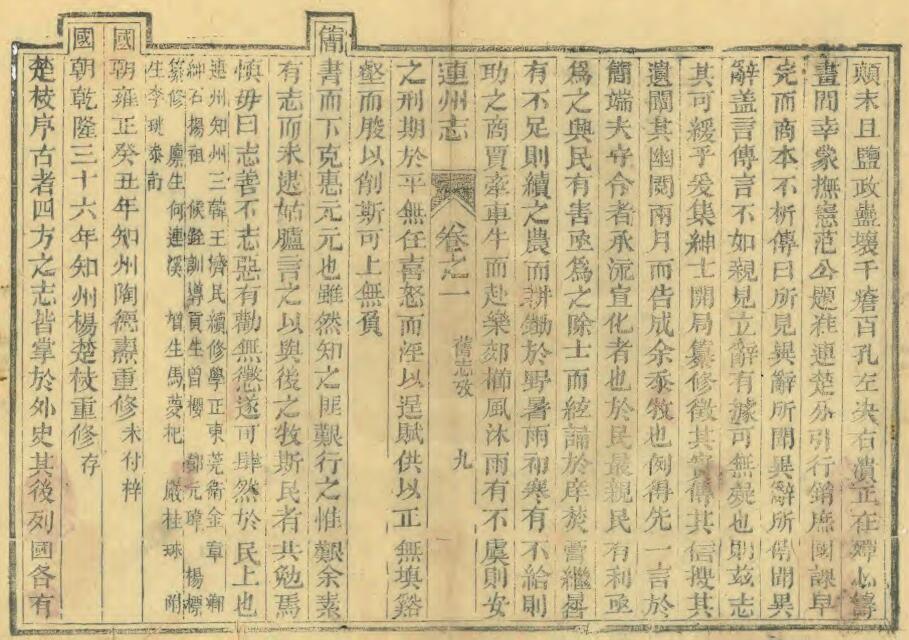 顛末且鹽政蠱壞千瘡百孔左決右潰正在殫心籌
畫間幸蒙撫憲范公題准連楚分引行銷庶國課早
完而商本不折傳曰所見異辭所聞異辭所傳聞異
辭蓋言傳言不如親見立辭有據可無疑也則茲志
其可緩乎爰集紳士開局纂修徵其實傳其信搜其
遺闡其幽閱兩月而告成余忝牧也例得先一言於
簡端夫守令者承流宣化者也於民最親民有利亟
為之興民有害亟為之除士而絃誦於庠焚膏繼晷
有不足則續之農而耕鋤於野暑雨祁寒有不給則
助之商賈牽車牛而赴樂郊櫛風沐雨有不虞則安
連州志 卷之一 舊志攷 九
之刑期於平無任喜怒而淫以逞賦供以正無填谿
壑而朘以削斯可上無負
簡
書而下克惠元元也雖然知之匪艱行之惟艱余素
有志而未逮姑臚言之以與後之牧斯民者共勉焉
慎毋曰志善不志惡有勸無懲遂可肆然於民上也
連州知州三韓王濟民續修學正東莞衛金章 鄉
紳石楊祖 候銓訓導貢生曾櫻 鄒元瑋 楊標
纂修 廩生何連溪 增生馬夢杞 嚴桂 珠 附
生李珖 泰 南
國
朝雍正癸丑年知州陶德燾重修未付梓
國
朝乾隆三十六年知州楊楚枝重修存
楚枝序古者四方之志皆掌於外史其後列國各有